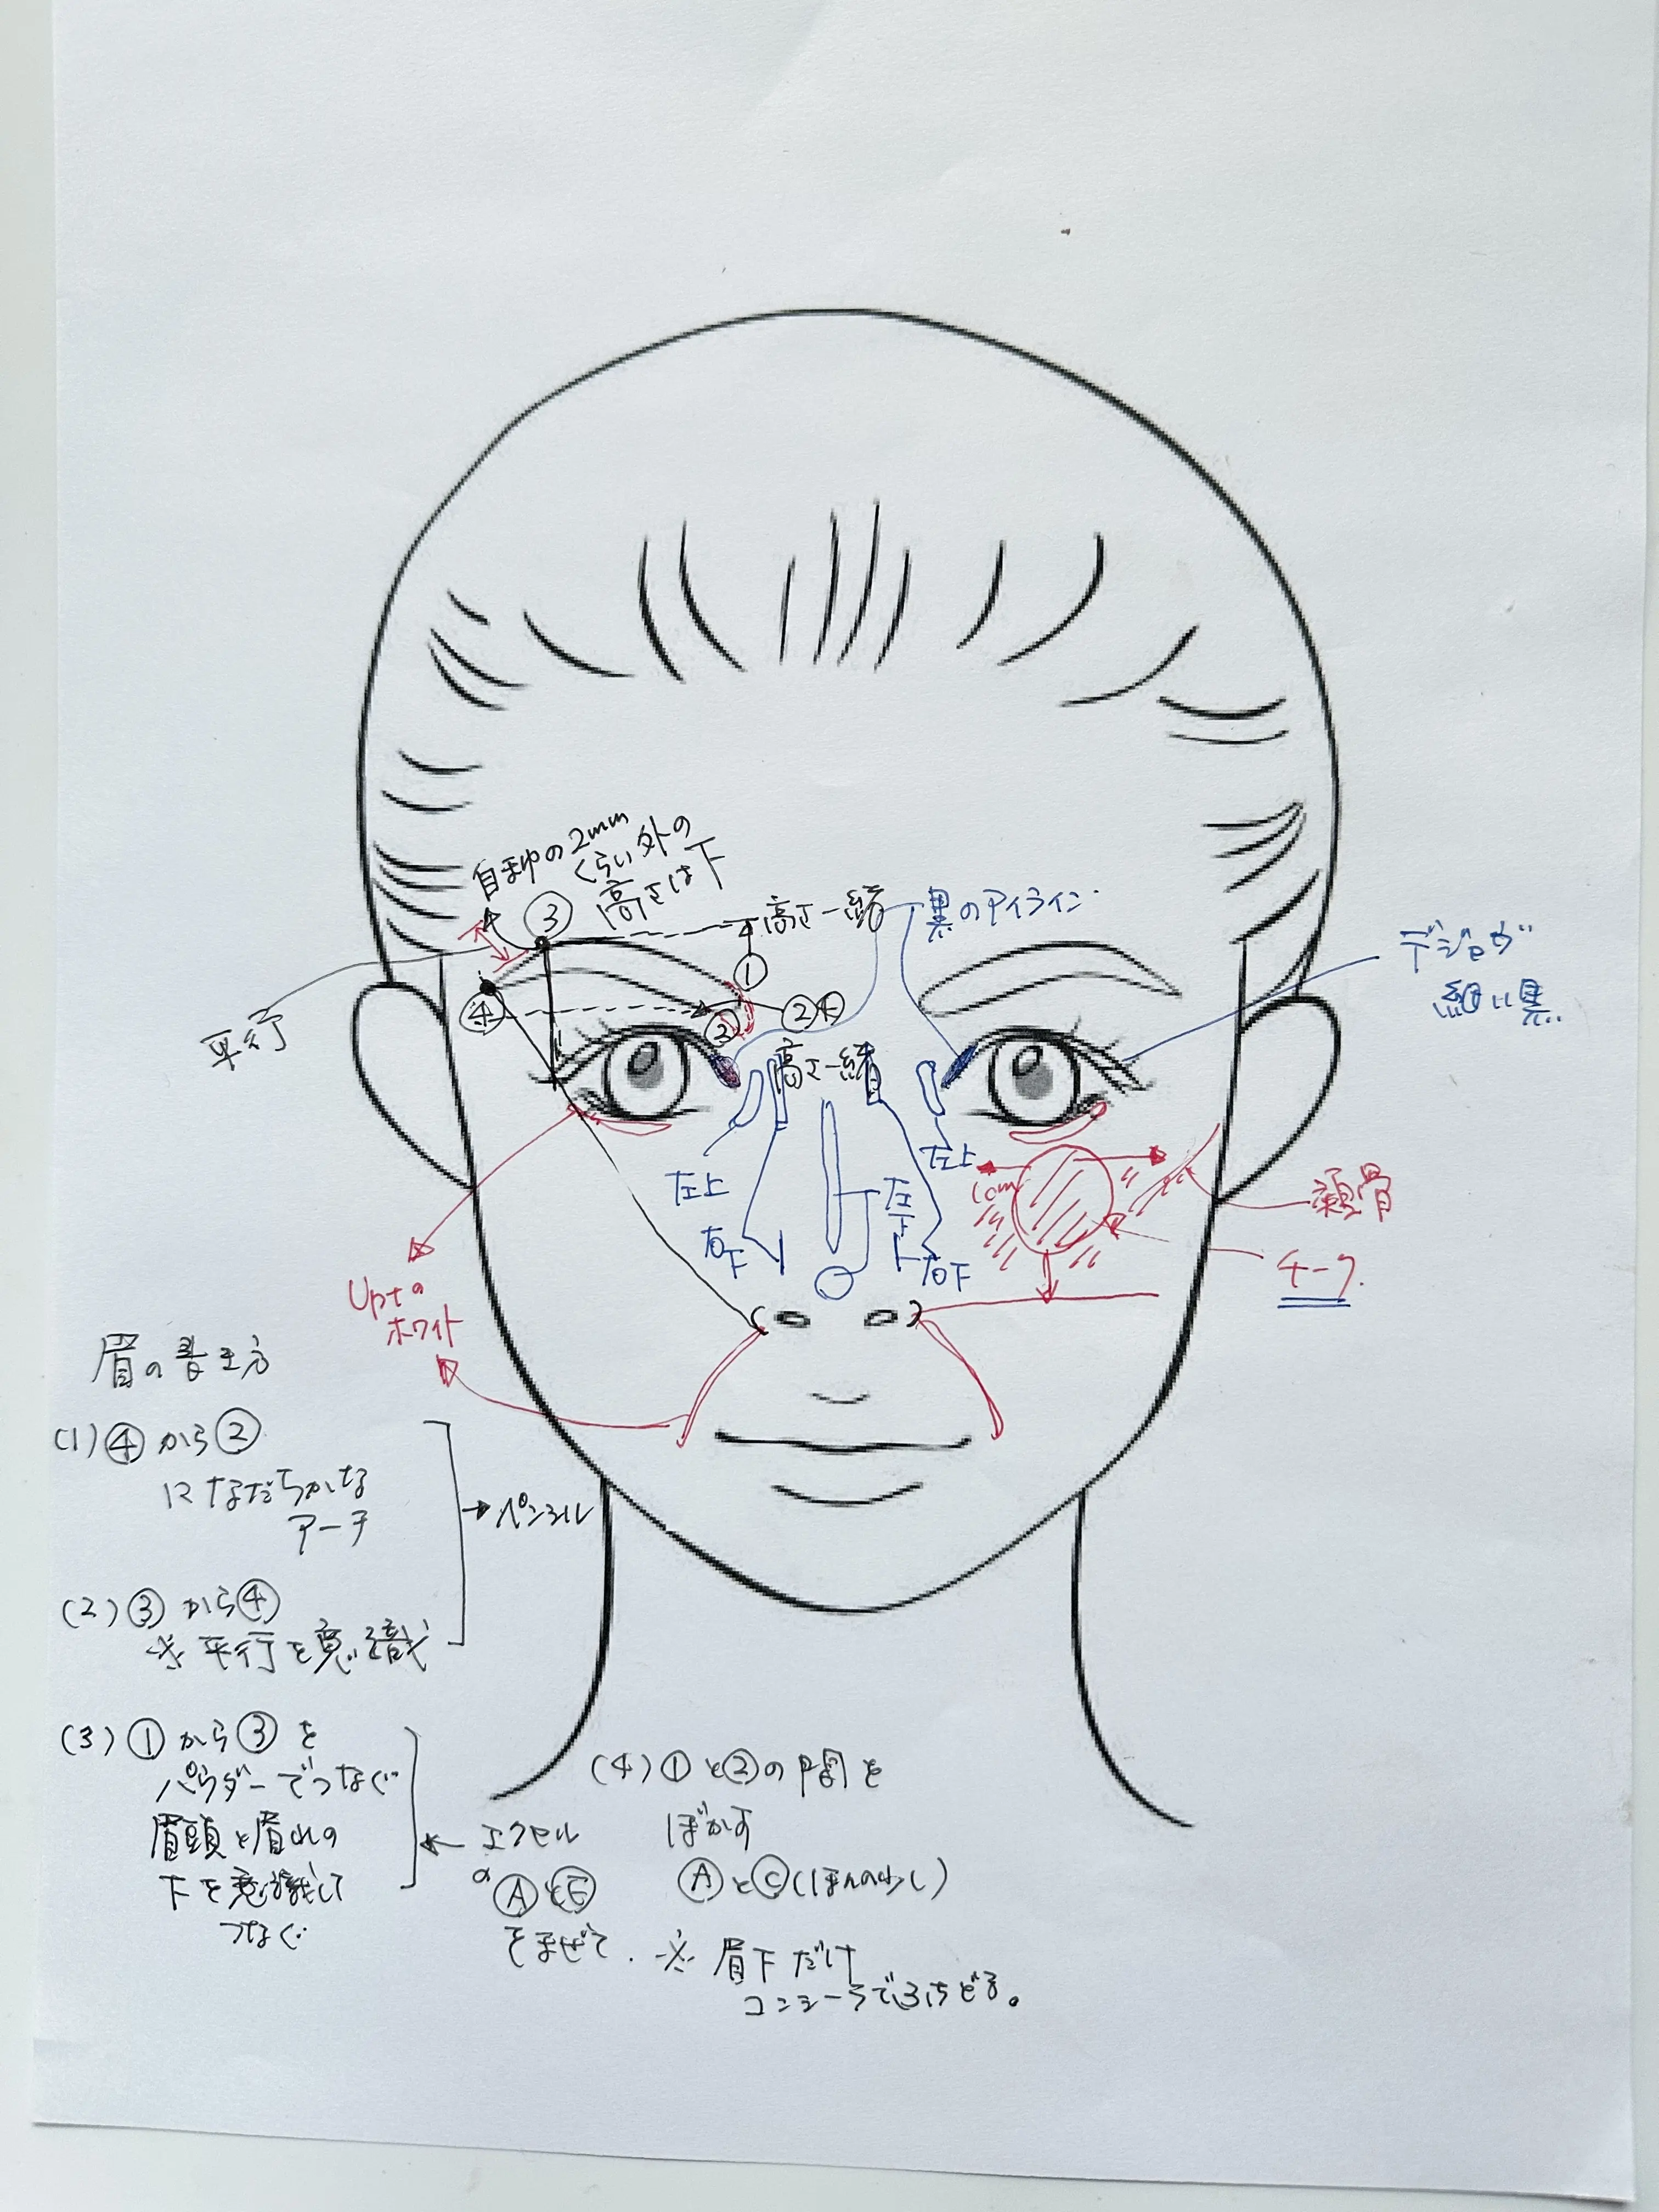 自まゆの2mm
くらい外の
高さは下
③
高さ一緒
黒のアイライン
①
デジャヴ
細い黒
④
②④
②
平行
高さ一緒
左上
左上
左下
右下
右下
1cm
頬骨
チーク
Uptの
ホワイト
眉の書き方
(1)④から②
になだらかな
アーチ
→ペンシル
(2)③から④
※平行を意識
(3)①から③を
パウダーでつなぐ
眉頭と眉山の
下を意識して
つなぐ
←エクセル
の
ⒶとⒺ
をまぜて.
(4)①と②の間を
ぼかす
ⒶとⒸ(ほんの少し)
※眉下だけ
コンシーラでふちどる。